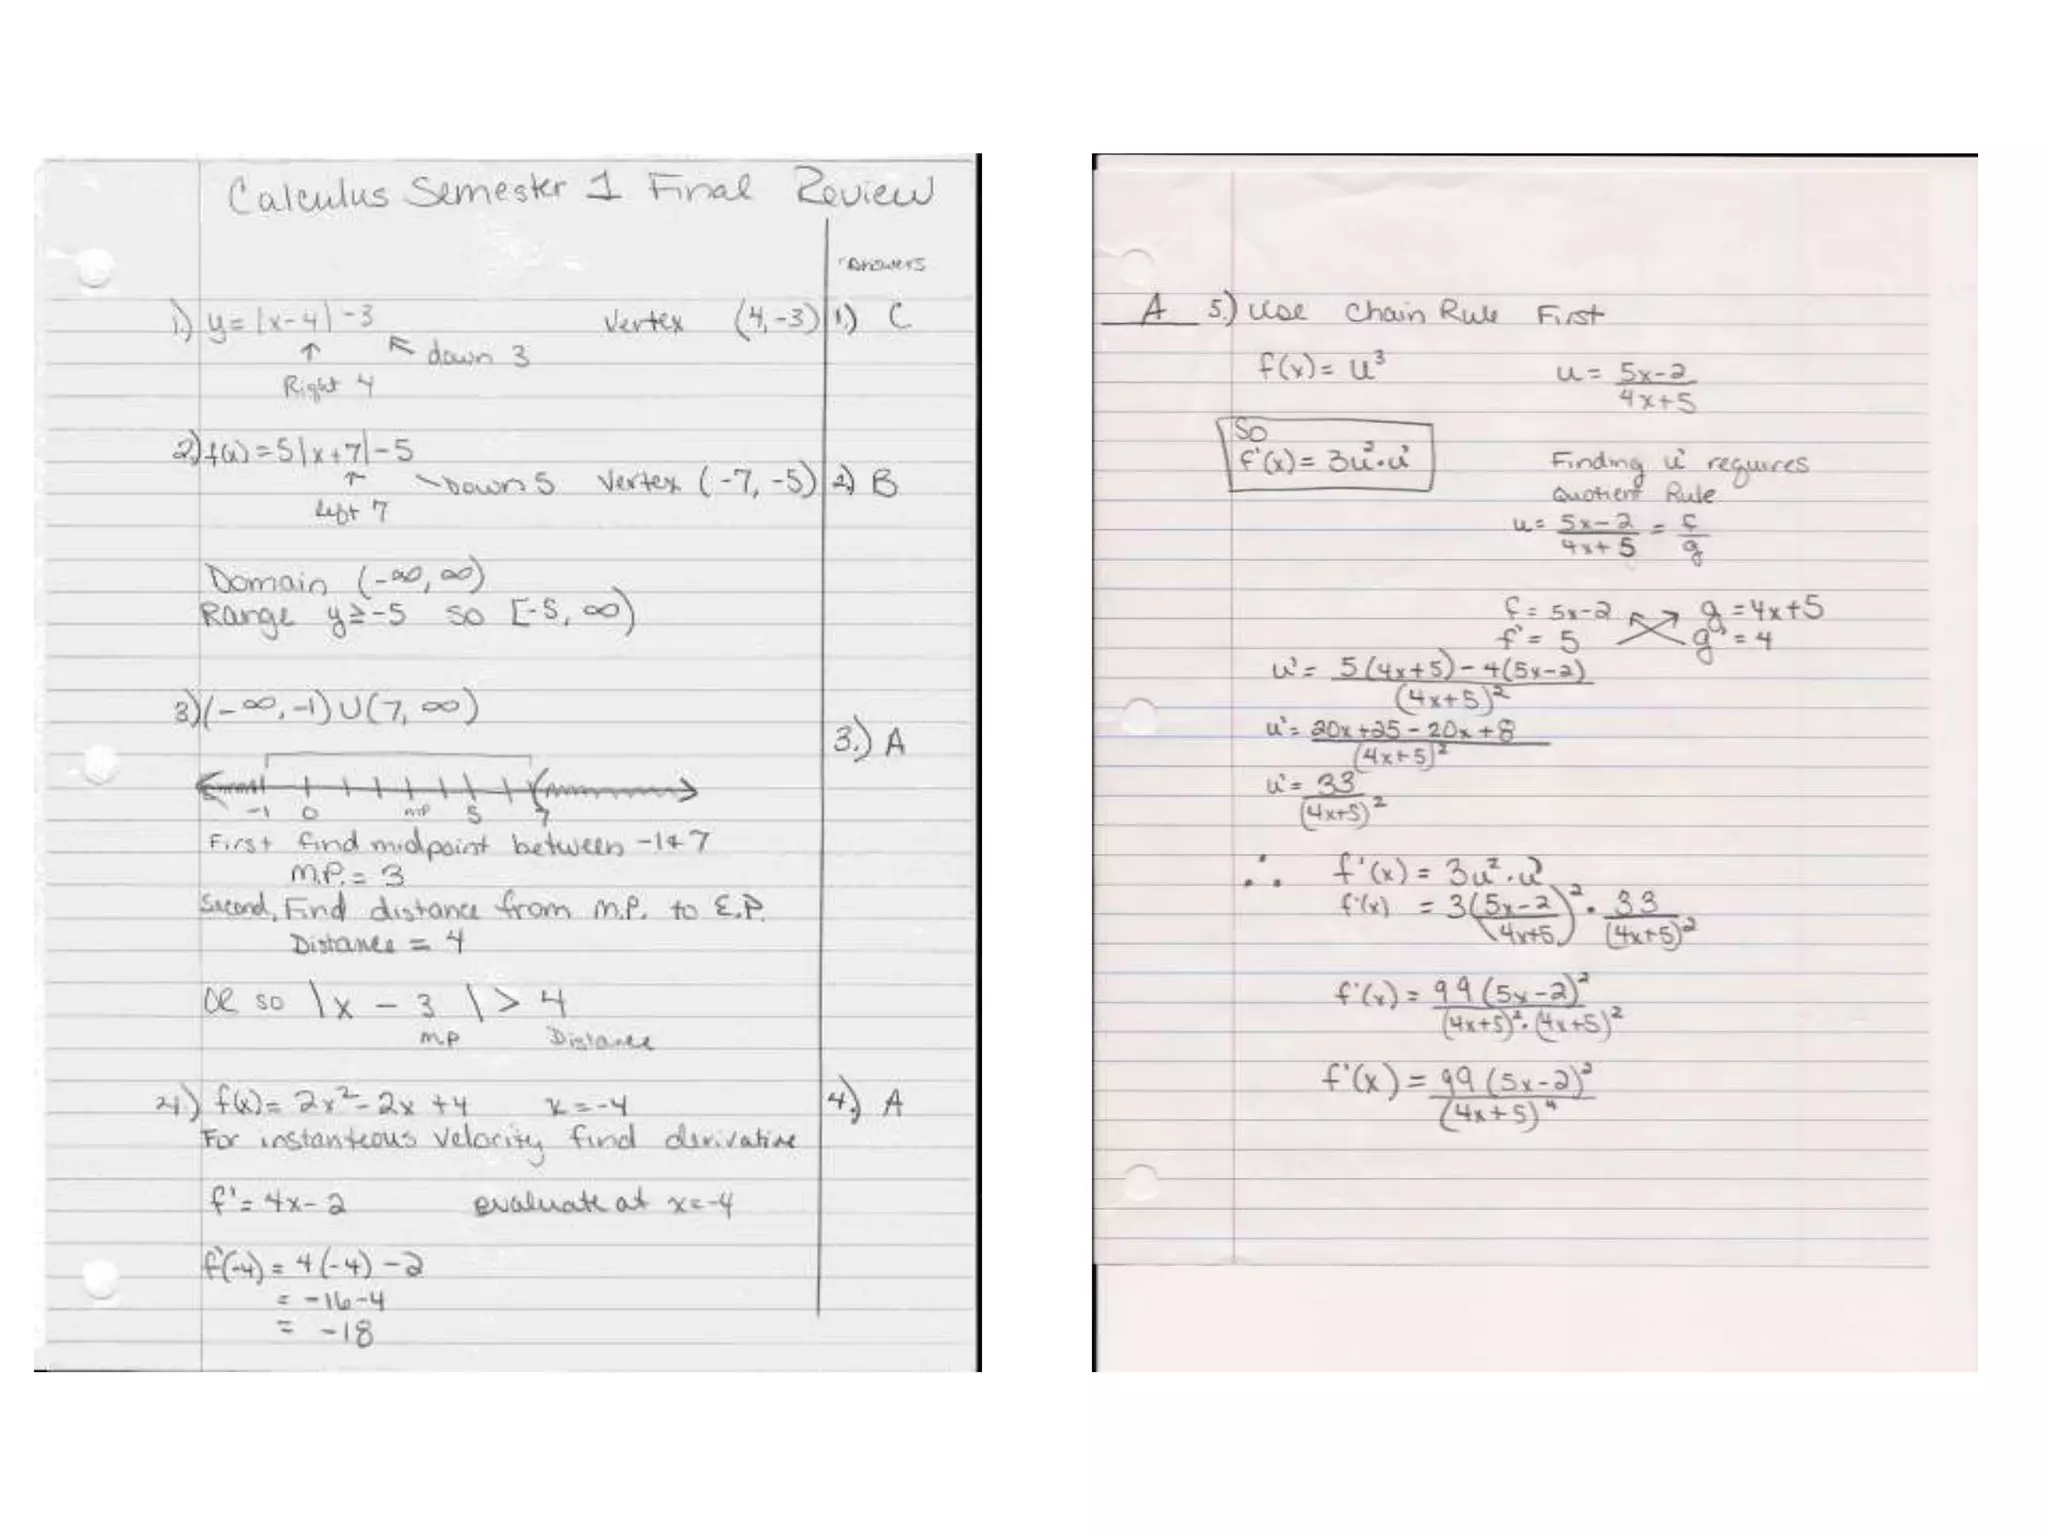 Calculus Semester 1 Final Review
Answers
1.) y = |x-4| -3 Vertex (4,-3) 1.) C
↑ ↖ down 3
Right 4
2.) f(x) = 5|x+7| -5
↑ Down 5 Vertex (-7, -5) 2.) B
Left 7
Domain (-∞, ∞)
Range y ≥ -5 so [-5, ∞)
3.) (-∞, -1) U (7, ∞)
3.) A
-1 0 mp 5 7
First find midpoint between -1 & 7
M.P. = 3
Second, Find distance from M.P. to E.P.
Distance = 4
OR so |x - 3| > 4
m.p Distance
4.) f(x) = 2x²- 2x +4 x = -4 4.) A
For instanteous velocity find derivative
f' = 4x - 2 evaluate at x = -4
f'(-4) = 4(-4) -2
= -16-4
= -18
A 5.) Use Chain Rule First
f(x) = u³ u = 5x-2
4x+5
So
f'(x) = 3u²·u'
Finding u' requires
Quotient Rule
u = 5x-2 = f
4x+5 g
f = 5x-2 g = 4x+5
f' = 5 g' = 4
u' = 5(4x+5) - 4(5x-2)
(4x+5)²
u' = 20x+25 - 20x +8
(4x+5)²
u' = 33
(4x+5)²
∴ f'(x) = 3u²·u'
f'(x) = 3(5x-2)² · 33
4x+5 (4x+5)²
f'(x) = 99(5x-2)²
(4x+5)²·(4x+5)²
f'(x) = 99(5x-2)²
(4x+5)⁴